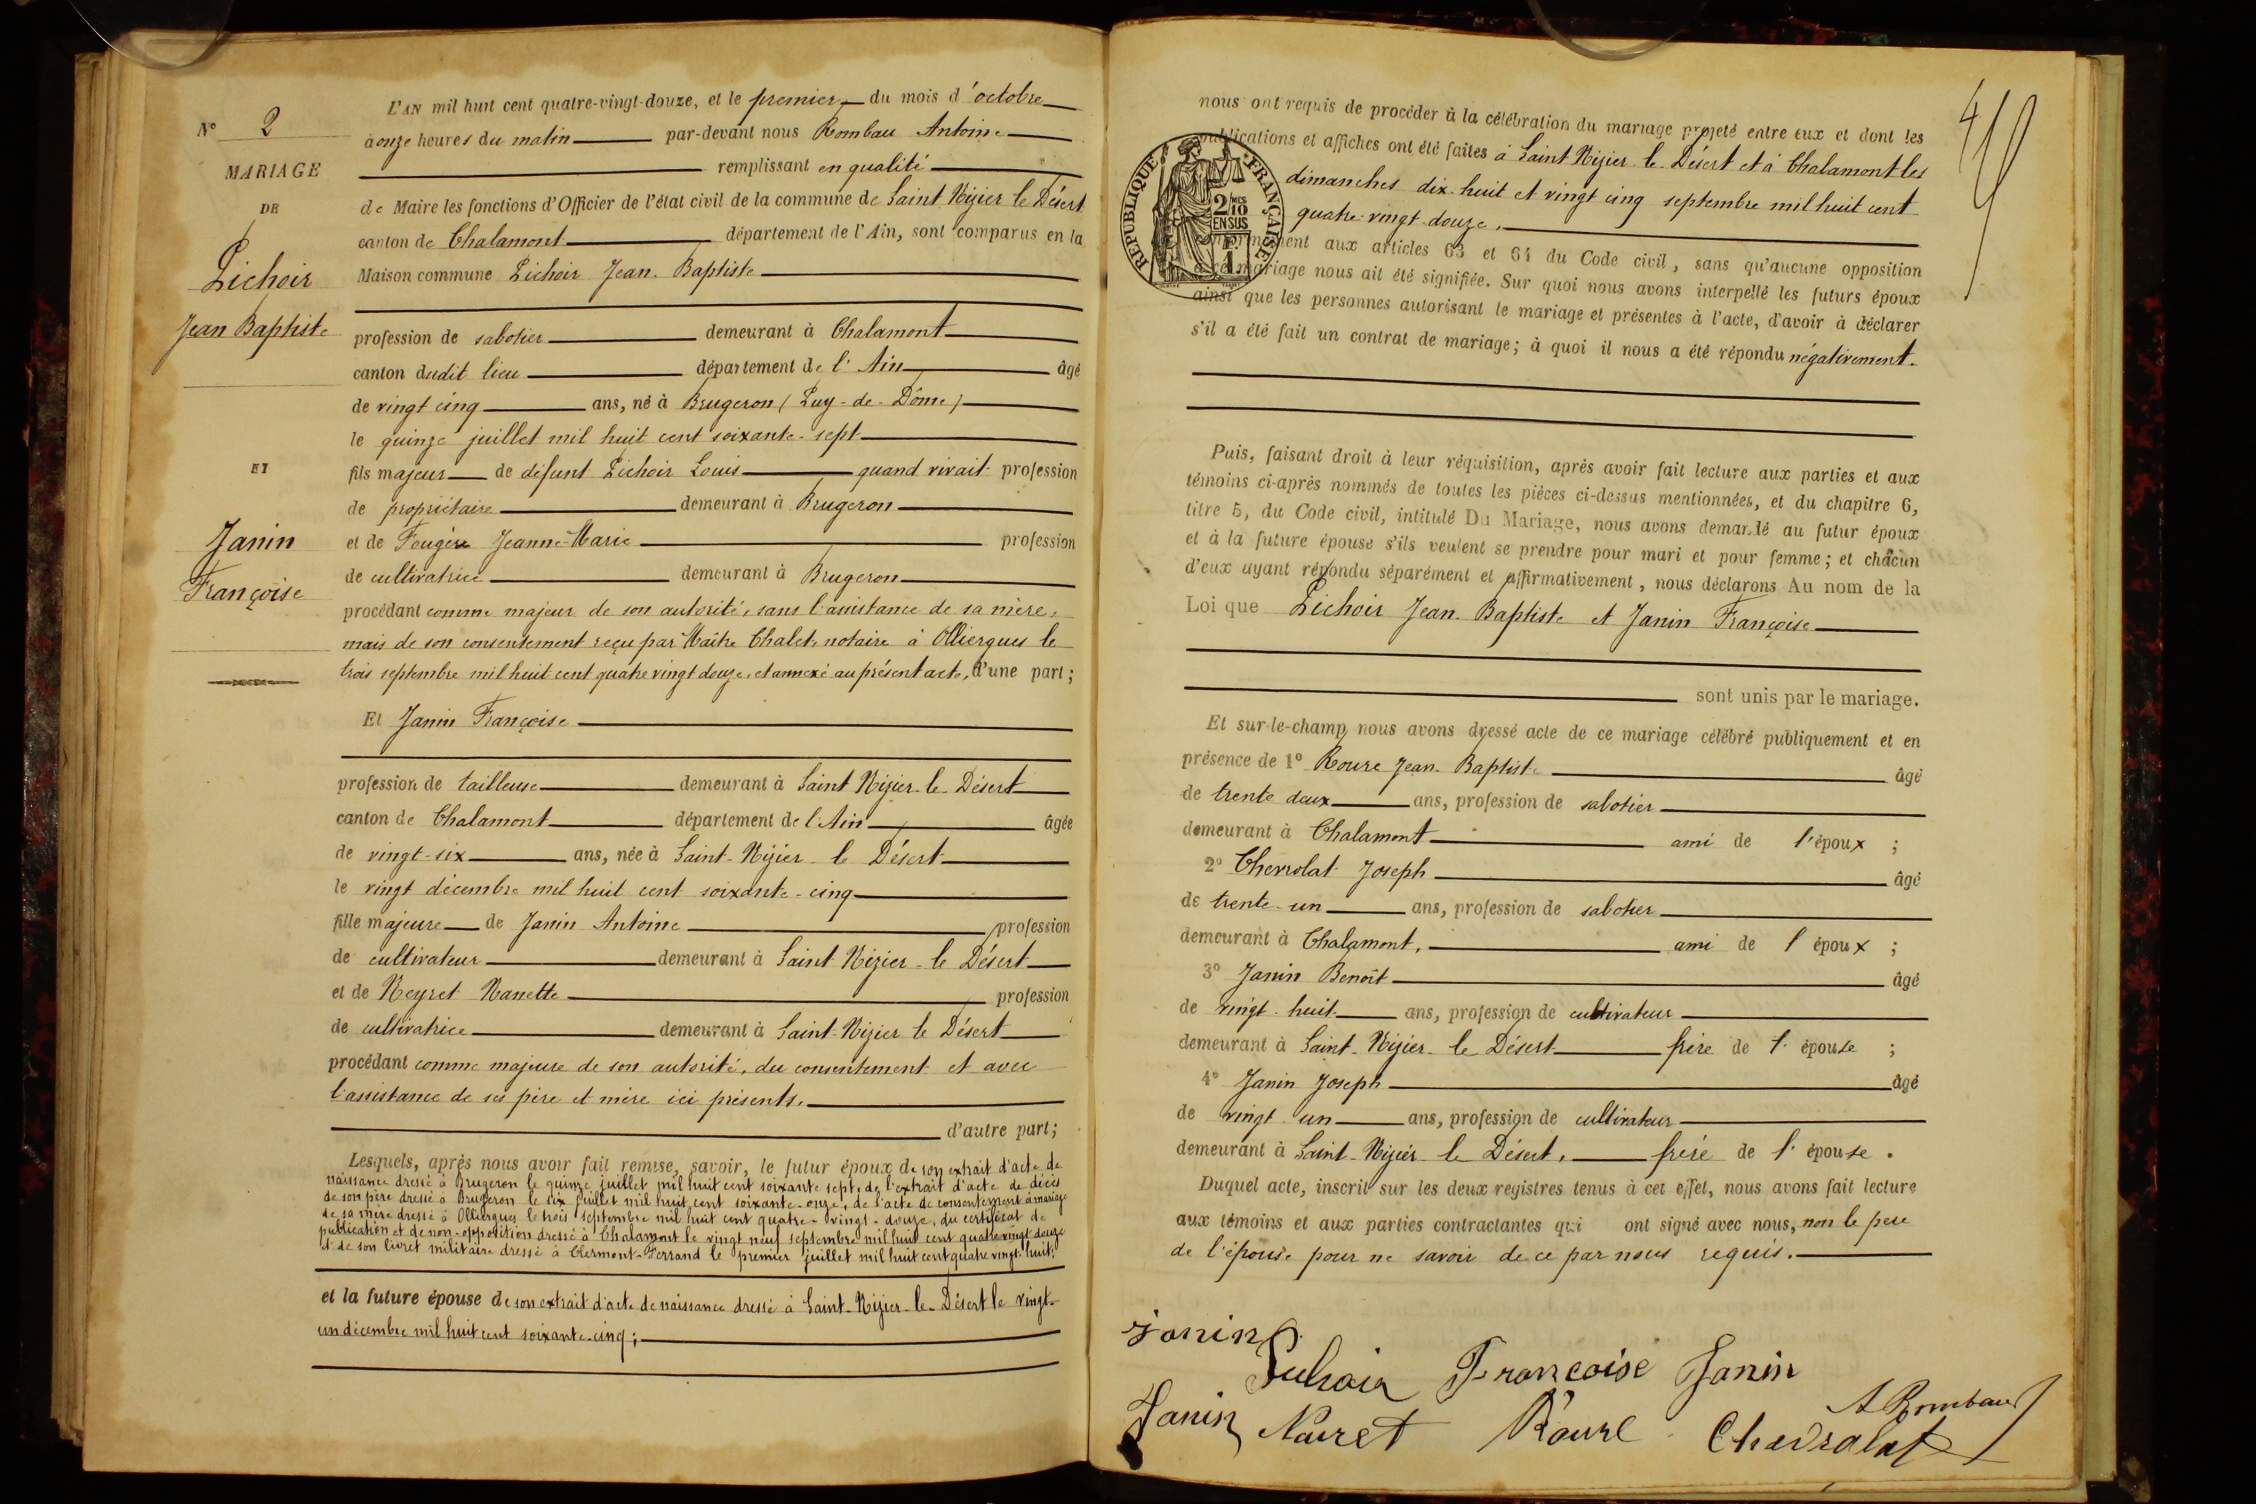 N° 2
MARIAGE
DE
Pichoir
Jean Baptiste
ET
Janin
Françoise
L'AN mil huit cent quatre-vingt-douze, et le premier du mois d'octobre
à onze heures du matin par-devant nous Rombau Antoine
remplissant en qualité
de Maire les fonctions d'Officier de l'état civil de la commune de Saint Nizier le Désert
canton de Chalamont département de l'Ain, sont comparus en la
Maison commune Pichoir Jean-Baptiste
profession de sabotier demeurant à Chalamont
canton dudit lieu département de l'Ain âgé
de vingt cinq ans, né à Brugeron (Puy-de-Dôme)
le quinze juillet mil huit cent soixante-sept
fils majeur de défunt Pichoir Louis quand vivait profession
de propriétaire demeurant à Brugeron
et de Fougère Jeanne-Marie profession
de cultivatrice demeurant à Brugeron
procédant comme majeur de son autorité, sans l'assistance de sa mère,
mais de son consentement reçu par Maître Chalet, notaire à Olliergues le
trois septembre mil huit cent quatre vingt douze, et annexé au présent acte, d'une part;
Et Janin Françoise
profession de tailleuse demeurant à Saint Nizier-le-Désert
canton de Chalamont département de l'Ain âgée
de vingt-six ans, née à Saint-Nizier-le Désert
le vingt décembre mil huit cent soixante-cinq
fille majeure de Janin Antoine profession
de cultivateur demeurant à Saint Nizier-le Désert
et de Neyret Nanette profession
de cultivatrice demeurant à Saint-Nizier le Désert
procédant comme majeure de son autorité, du consentement et avec
l'assistance de ses père et mère ici présents.
d'autre part;
Lesquels, après nous avoir fait remise, savoir, le futur époux de son extrait d'acte de
naissance dressé à Brugeron le quinze juillet mil huit cent soixante sept, de l'extrait d'acte de décès
de son père dressé à Brugeron le six juillet mil huit cent soixante-onze, de l'acte de consentement à mariage
de sa mère dressé à Olliergues le trois septembre mil huit cent quatre-vingt-douze, du certificat de
publication et de non-opposition dressé à Chalamont le vingt neuf septembre mil huit cent quatre vingt douze
et de son livret militaire dressé à Clermont-Ferrand le premier juillet mil huit cent quatre vingt huit;
et la future épouse de son extrait d'acte de naissance dressé à Saint-Nizier-le-Désert le vingt-
un décembre mil huit cent soixante-cinq;
nous ont requis de procéder à la célébration du mariage projeté entre eux et dont les
publications et affiches ont été faites à Saint Nizier-le-Désert et à Chalamont les
dimanches dix-huit et vingt cinq septembre mil huit cent
quatre-vingt-douze,
conformément aux articles 63 et 64 du Code civil, sans qu'aucune opposition
à ce mariage nous ait été signifiée. Sur quoi nous avons interpellé les futurs époux
ainsi que les personnes autorisant le mariage et présentes à l'acte, d'avoir à déclarer
s'il a été fait un contrat de mariage; à quoi il nous a été répondu négativement.
RÉPUBLIQUE FRANÇAISE
2/10 EN SUS
Puis, faisant droit à leur réquisition, après avoir fait lecture aux parties et aux
témoins ci-après nommés de toutes les pièces ci-dessus mentionnées, et du chapitre 6,
titre 5, du Code civil, intitulé Du Mariage, nous avons demandé au futur époux
et à la future épouse s'ils veulent se prendre pour mari et pour femme; et chacun
d'eux ayant répondu séparément et affirmativement, nous déclarons Au nom de la
Loi que Pichoir Jean-Baptiste et Janin Françoise
sont unis par le mariage.
Et sur-le-champ nous avons dressé acte de ce mariage célébré publiquement et en
présence de 1° Roure Jean-Baptiste âgé
de trente deux ans, profession de sabotier
demeurant à Chalamont ami de l'époux ;
2° Chevrolat Joseph âgé
de trente-un ans, profession de sabotier
demeurant à Chalamont, ami de l'époux ;
3° Janin Benoît âgé
de vingt-huit ans, profession de cultivateur
demeurant à Saint-Nizier-le Désert frère de l'épouse ;
4° Janin Joseph âgé
de vingt un ans, profession de cultivateur
demeurant à Saint-Nizier-le Désert, frère de l'épouse.
Duquel acte, inscrit sur les deux registres tenus à cet effet, nous avons fait lecture
aux témoins et aux parties contractantes qui ont signé avec nous, non le père
de l'épouse pour ne savoir de ce par nous requis.
Janin
Pichoir Françoise Janin
A Rombau
Janin Nairet Roure Chevrolat